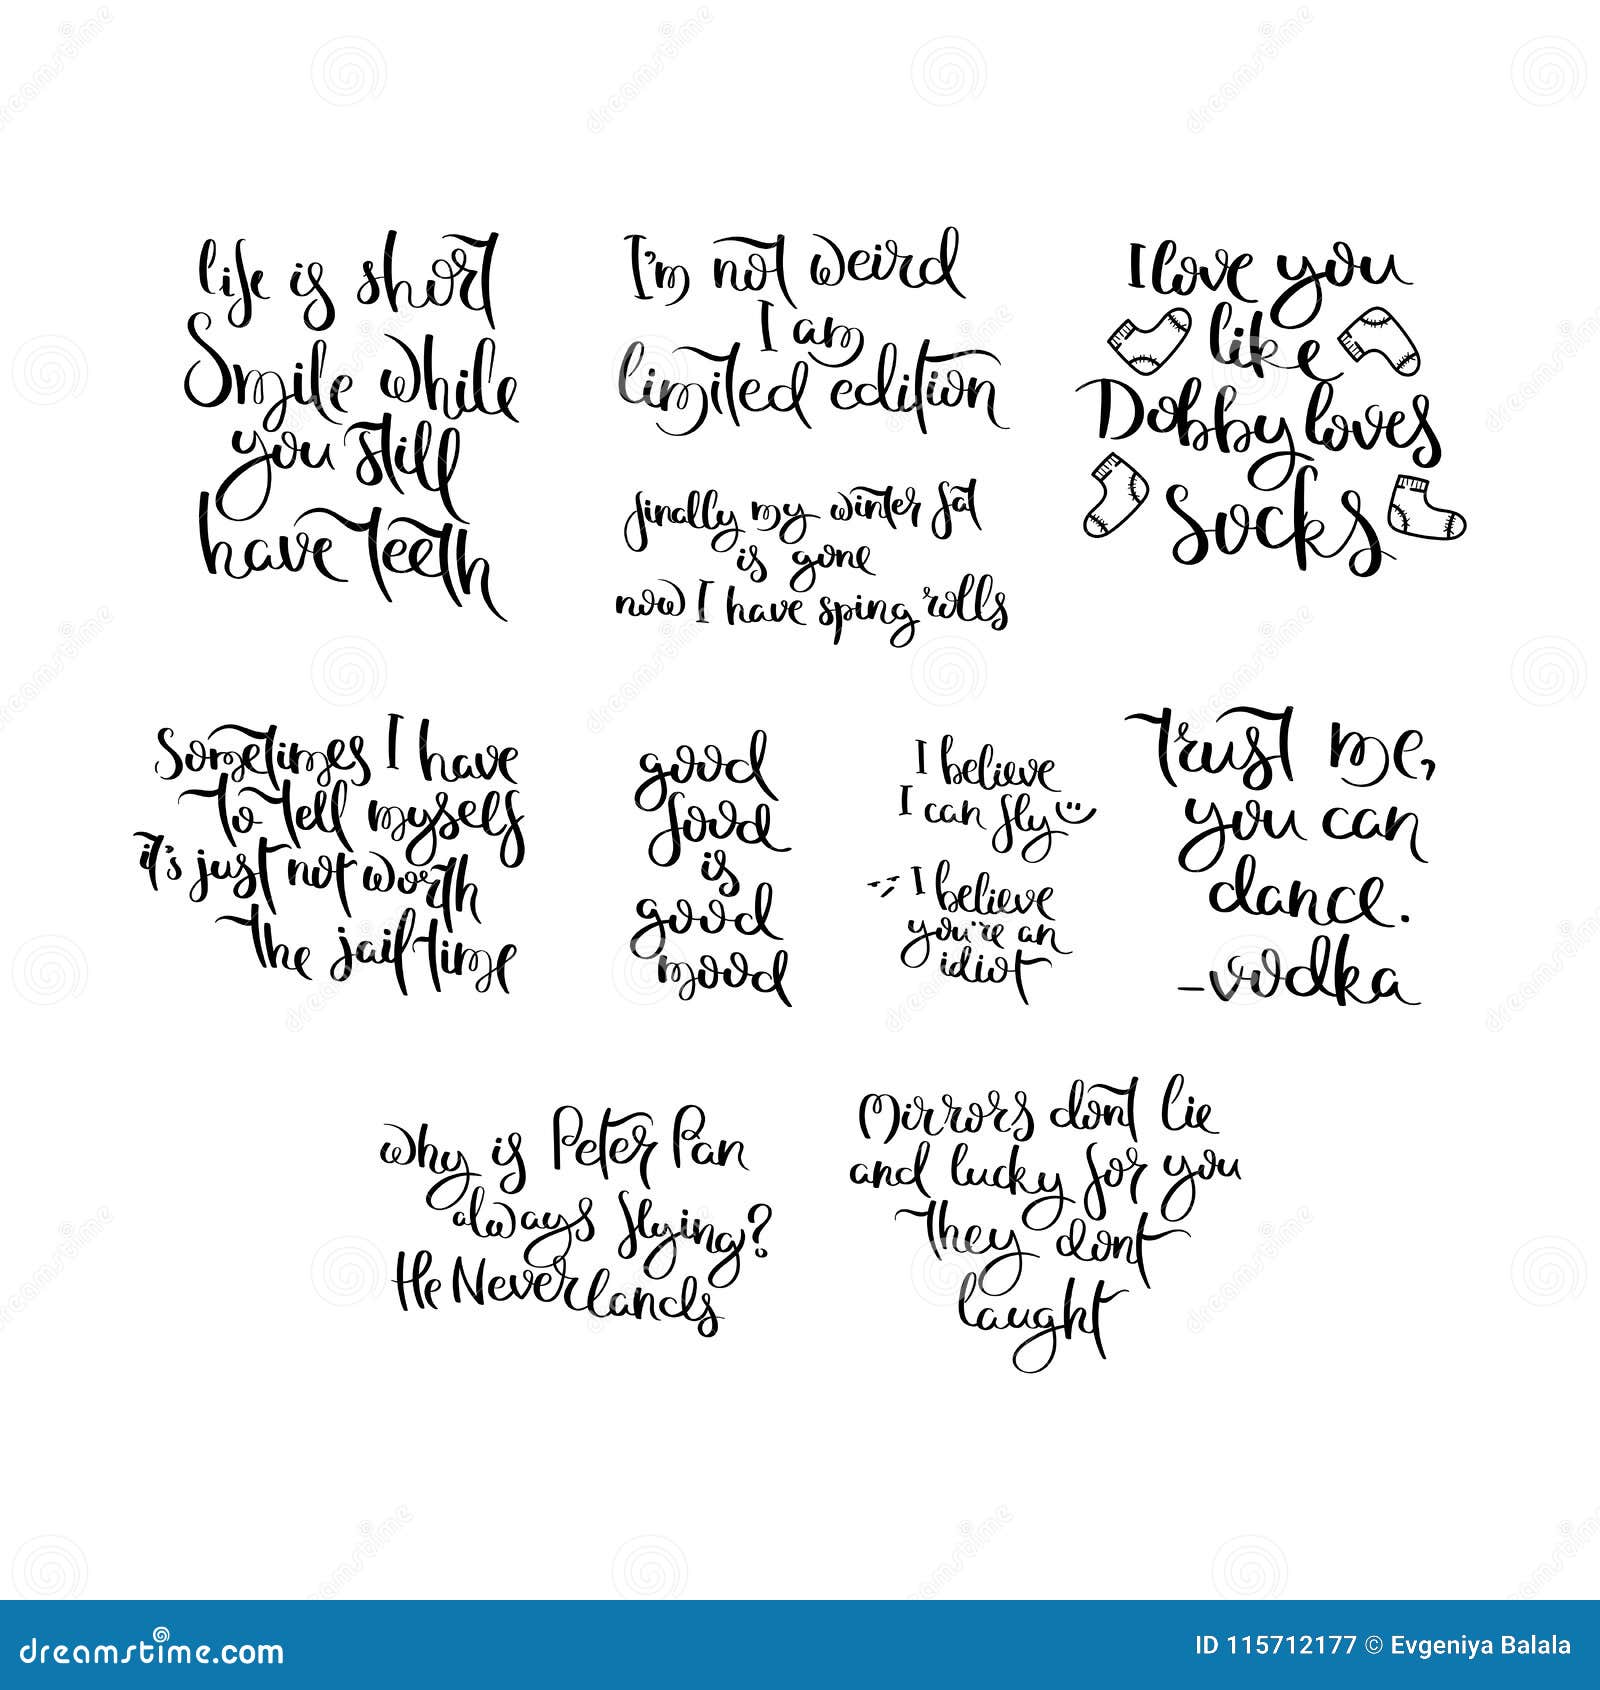 life is short
Smile while
you still
have teeth
I'm not weird
I am
limited edition
finally my winter fat
is gone
now I have sping rolls
I love you
like
Dobby loves
socks
Sometimes I have
to tell myself
it's just not worth
the jail time
good
food
is
good
mood
I believe
I can fly
I believe
you're an
idiot
trust me,
you can
dance.
-vodka
why is Peter Pan
always flying?
He Neverlands
Mirrors dont lie
and lucky for you
they dont
laught
dreamstime.com
ID 115712177 © Evgeniya Balala